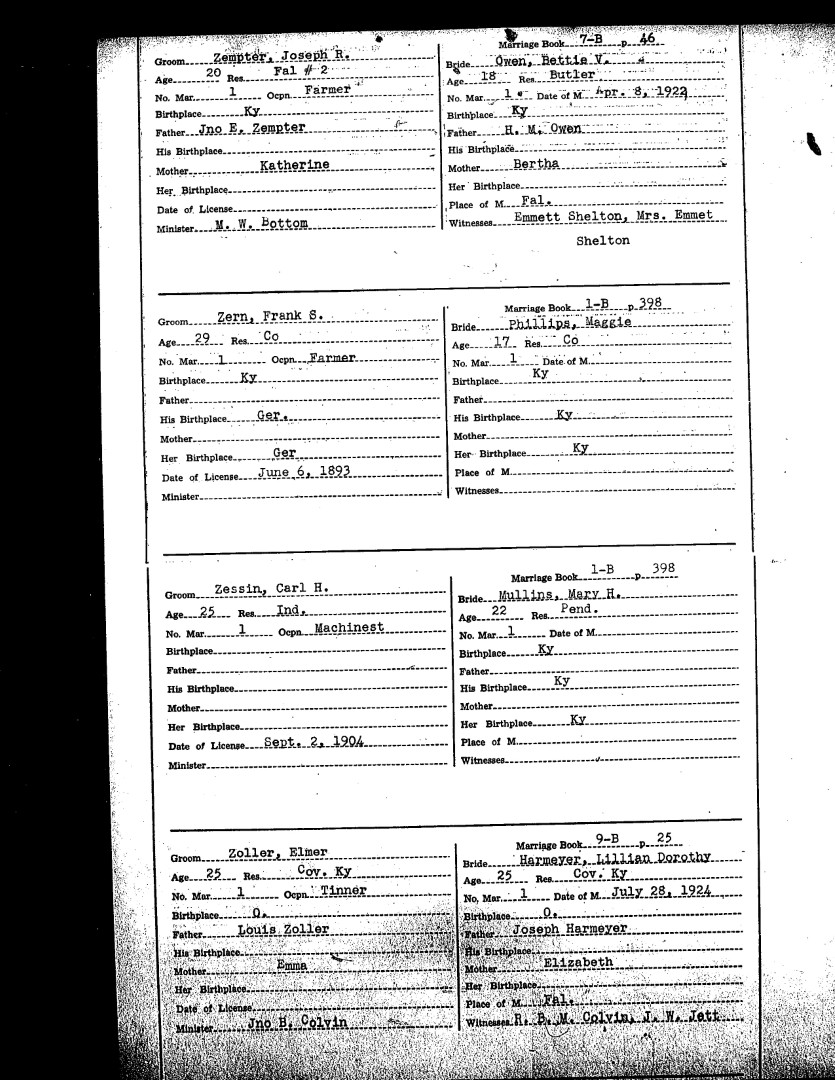 Marriage Book 7-B p. 46
Groom Zempter, Joseph R.
Bride Owen, Bettie V.
Age 20 Res. Fal # 2
Age 18 Res. Butler
No. Mar. 1 Ocpn. Farmer
No. Mar. 1 Date of M. Apr. 8, 1922
Birthplace Ky
Birthplace Ky
Father Jno E. Zempter
Father H. M. Owen
His Birthplace
His Birthplace
Mother Katherine
Mother Bertha
Her Birthplace
Her Birthplace
Date of License
Place of M. Fal.
Minister M. W. Bottom
Witnesses Emmett Shelton, Mrs. Emmet
Shelton
Marriage Book 1-B p. 398
Groom Zern, Frank S.
Bride Phillips, Maggie
Age 29 Res. Co
Age 17 Res. Co
No. Mar. 1 Ocpn. Farmer
No. Mar. 1 Date of M.
Birthplace Ky
Birthplace Ky
Father
Father
His Birthplace Ger.
His Birthplace Ky
Mother
Mother
Her Birthplace Ger
Her Birthplace Ky
Date of License June 6, 1893
Place of M.
Minister
Witnesses
Marriage Book 1-B p. 398
Groom Zessin, Carl H.
Bride Mullins, Mary H.
Age 25 Res. Ind.
Age 22 Res. Pend.
No. Mar. 1 Ocpn. Machinest
No. Mar. 1 Date of M.
Birthplace
Birthplace Ky
Father
Father
His Birthplace
His Birthplace Ky
Mother
Mother
Her Birthplace
Her Birthplace Ky
Date of License Sept. 2, 1904
Place of M.
Minister
Witnesses
Marriage Book 9-B p. 25
Groom Zoller, Elmer
Bride Harmeyer, Lillian Dorothy
Age 25 Res. Cov. Ky
Age 25 Res. Cov. Ky
No. Mar. 1 Ocpn. Tinner
No. Mar. 1 Date of M. July 28, 1924
Birthplace O.
Birthplace O.
Father Louis Zoller
Father Joseph Harmeyer
His Birthplace
His Birthplace
Mother Emma
Mother Elizabeth
Her Birthplace
Her Birthplace
Date of License
Place of M. Fal.
Minister Jno B. Colvin
Witnesses R. B. M. Colvin, J. W. Jett